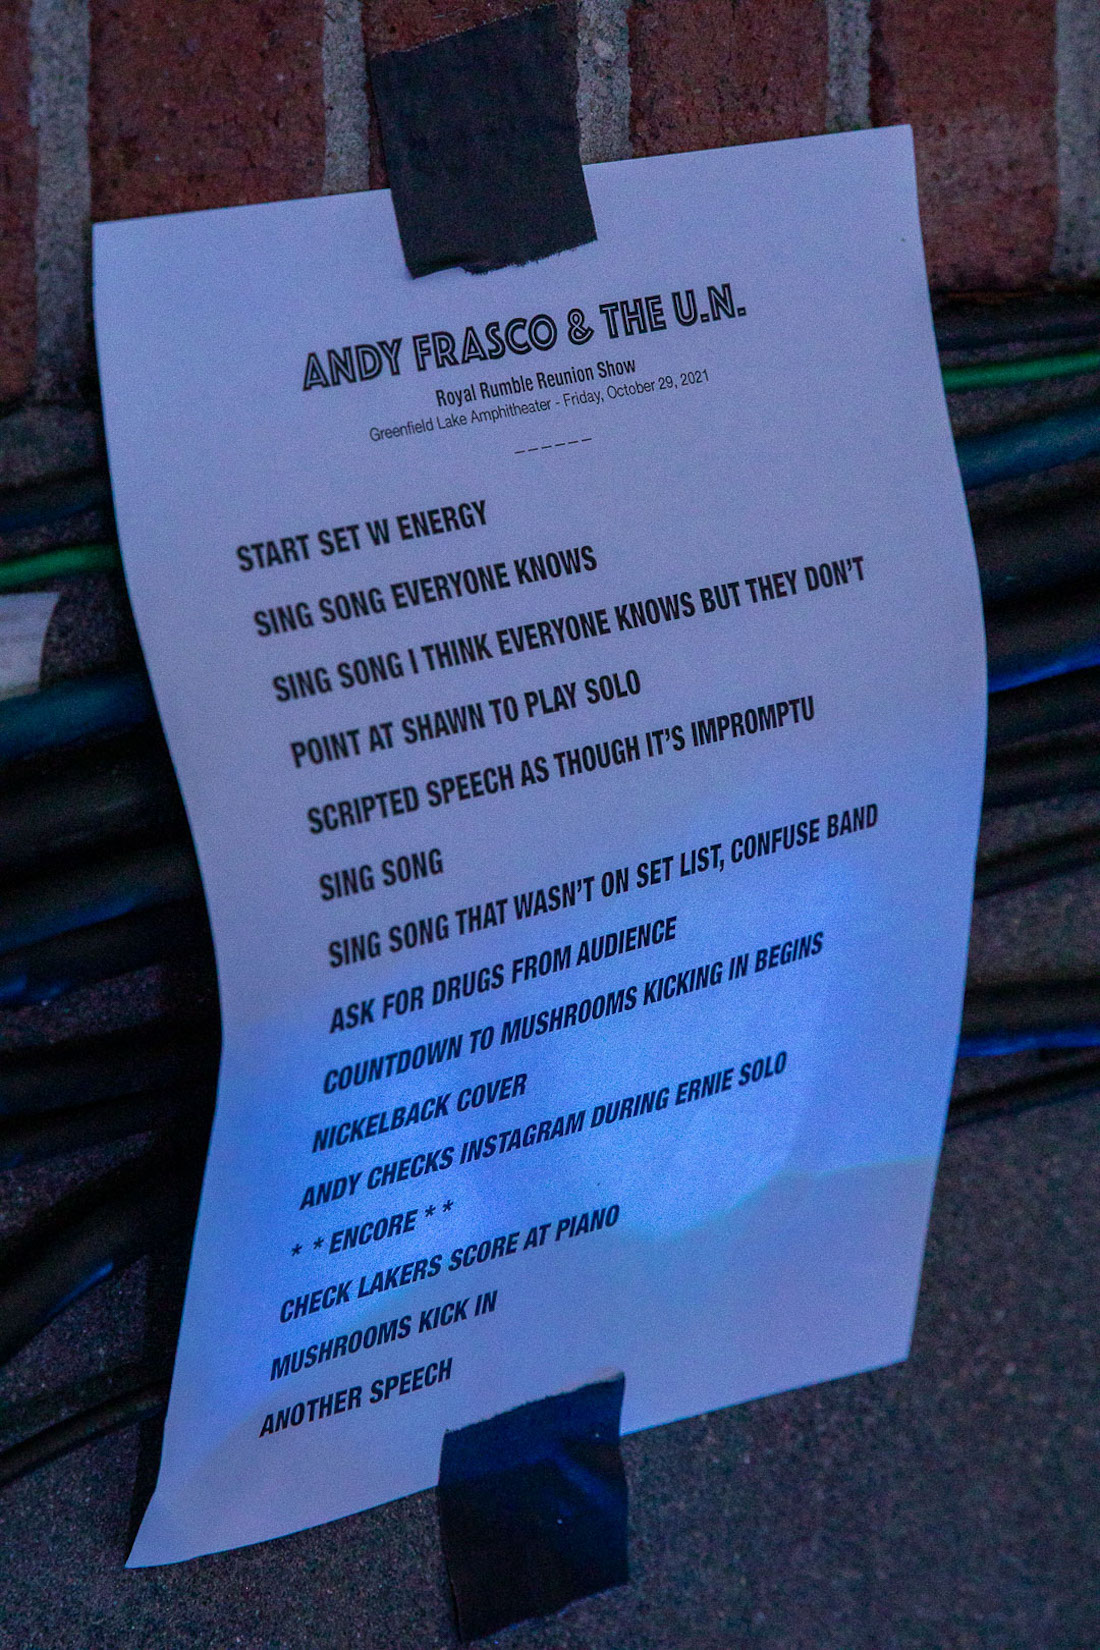 ANDY FRASCO & THE U.N.
Royal Rumble Reunion Show
Greenfield Lake Amphitheater - Friday, October 29, 2021
------
START SET W ENERGY
SING SONG EVERYONE KNOWS
SING SONG I THINK EVERYONE KNOWS BUT THEY DON'T
POINT AT SHAWN TO PLAY SOLO
SCRIPTED SPEECH AS THOUGH IT'S IMPROMPTU
SING SONG
SING SONG THAT WASN'T ON SET LIST, CONFUSE BAND
ASK FOR DRUGS FROM AUDIENCE
COUNTDOWN TO MUSHROOMS KICKING IN BEGINS
NICKELBACK COVER
ANDY CHECKS INSTAGRAM DURING ERNIE SOLO
* * ENCORE * *
CHECK LAKERS SCORE AT PIANO
MUSHROOMS KICK IN
ANOTHER SPEECH